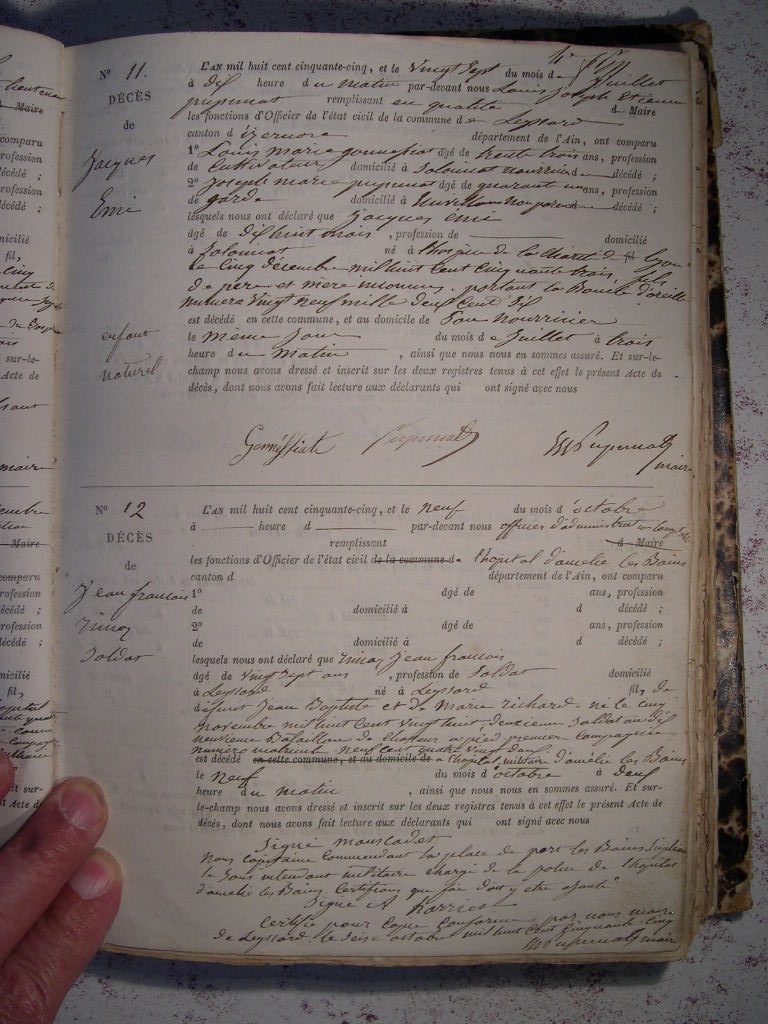 N° 11.
DÉCÈS
de
Jacques
Emi
enfant
naturel
L'AN mil huit cent cinquante-cinq, et le vingt sept du mois de Juillet
à dix heure du matin par-devant nous Louis Joseph Etienne
pupunat remplissant en qualité de Maire
les fonctions d'Officier de l'état civil de la commune de Leyssard
canton d'izernore département de l'Ain, ont comparu
1° Louis marie gonnefiat âgé de trente trois ans, profession
de Cultivateur, domicilié à Solomiat nourricier d décédé ;
2° Joseph marie pupunat âgé de quarante un ans, profession
de garde domicilié à décédé ;
lesquels nous ont déclaré que Jacques emi
âgé de dix huit mois, profession de domicilié
à Solomiat né à l'hospice de la charité de Lyon
le cinq décembre mil huit cent cinquante trois, fils
de père et mère inconnus, portant la Boucle d'oreille
numéro vingt neuf mille deux cent dix
est décédé en cette commune, et au domicile de Son nourricier
le même jour du mois de Juillet à trois
heure du matin, ainsi que nous nous en sommes assuré. Et sur-le-
champ nous avons dressé et inscrit sur les deux registres tenus à cet effet le présent Acte de
décès, dont nous avons fait lecture aux déclarants qui ont signé avec nous
Gonnessiat Pupunat Pupunat
maire
N° 12
DÉCÈS
de
Jean francois
soldat
L'AN mil huit cent cinquante-cinq, et le neuf du mois d'octobre
à heure d par-devant nous officier d'administration
remplissant d Maire
les fonctions d'Officier de l'état civil de la commune de l'hopital d'amelie les Bains
canton d département de l'Ain, ont comparu
1° âgé de ans, profession
de domicilié à d décédé ;
2° âgé de ans, profession
de domicilié à d décédé ;
lesquels nous ont déclaré que Jean francois
âgé de vingt sept ans, profession de Soldat domicilié
à Leyssard né à Leyssard fils, de
défunt Jean Baptiste et de Marie richard. né le cinq
novembre mil huit cent vingt huit, deuxieme soldat au dix
neuvieme Bataillon de chasseur a pied premiere compagnie
numéro matricule neuf cent quatre vingt deux
est décédé en cette commune, et au domicile de a l'hopital militaire d'amelie les Bains
le neuf du mois d'octobre à deux
heure du matin, ainsi que nous nous en sommes assuré. Et sur-
le-champ nous avons dressé et inscrit sur les deux registres tenus à cet effet le présent Acte de
décès, dont nous avons fait lecture aux déclarants qui ont signé avec nous
Signé
nous capitaine commandant la place de les Bains
le Sous intendant militaire chargé de la police de l'hopital
d'amelie les Bains. Certifions que foi doit y etre ajoutée
Signé A
Certifié pour Copie Conforme par nous maire
de Leyssard le octobre mil huit cent cinquante cinq
Pupunat maire